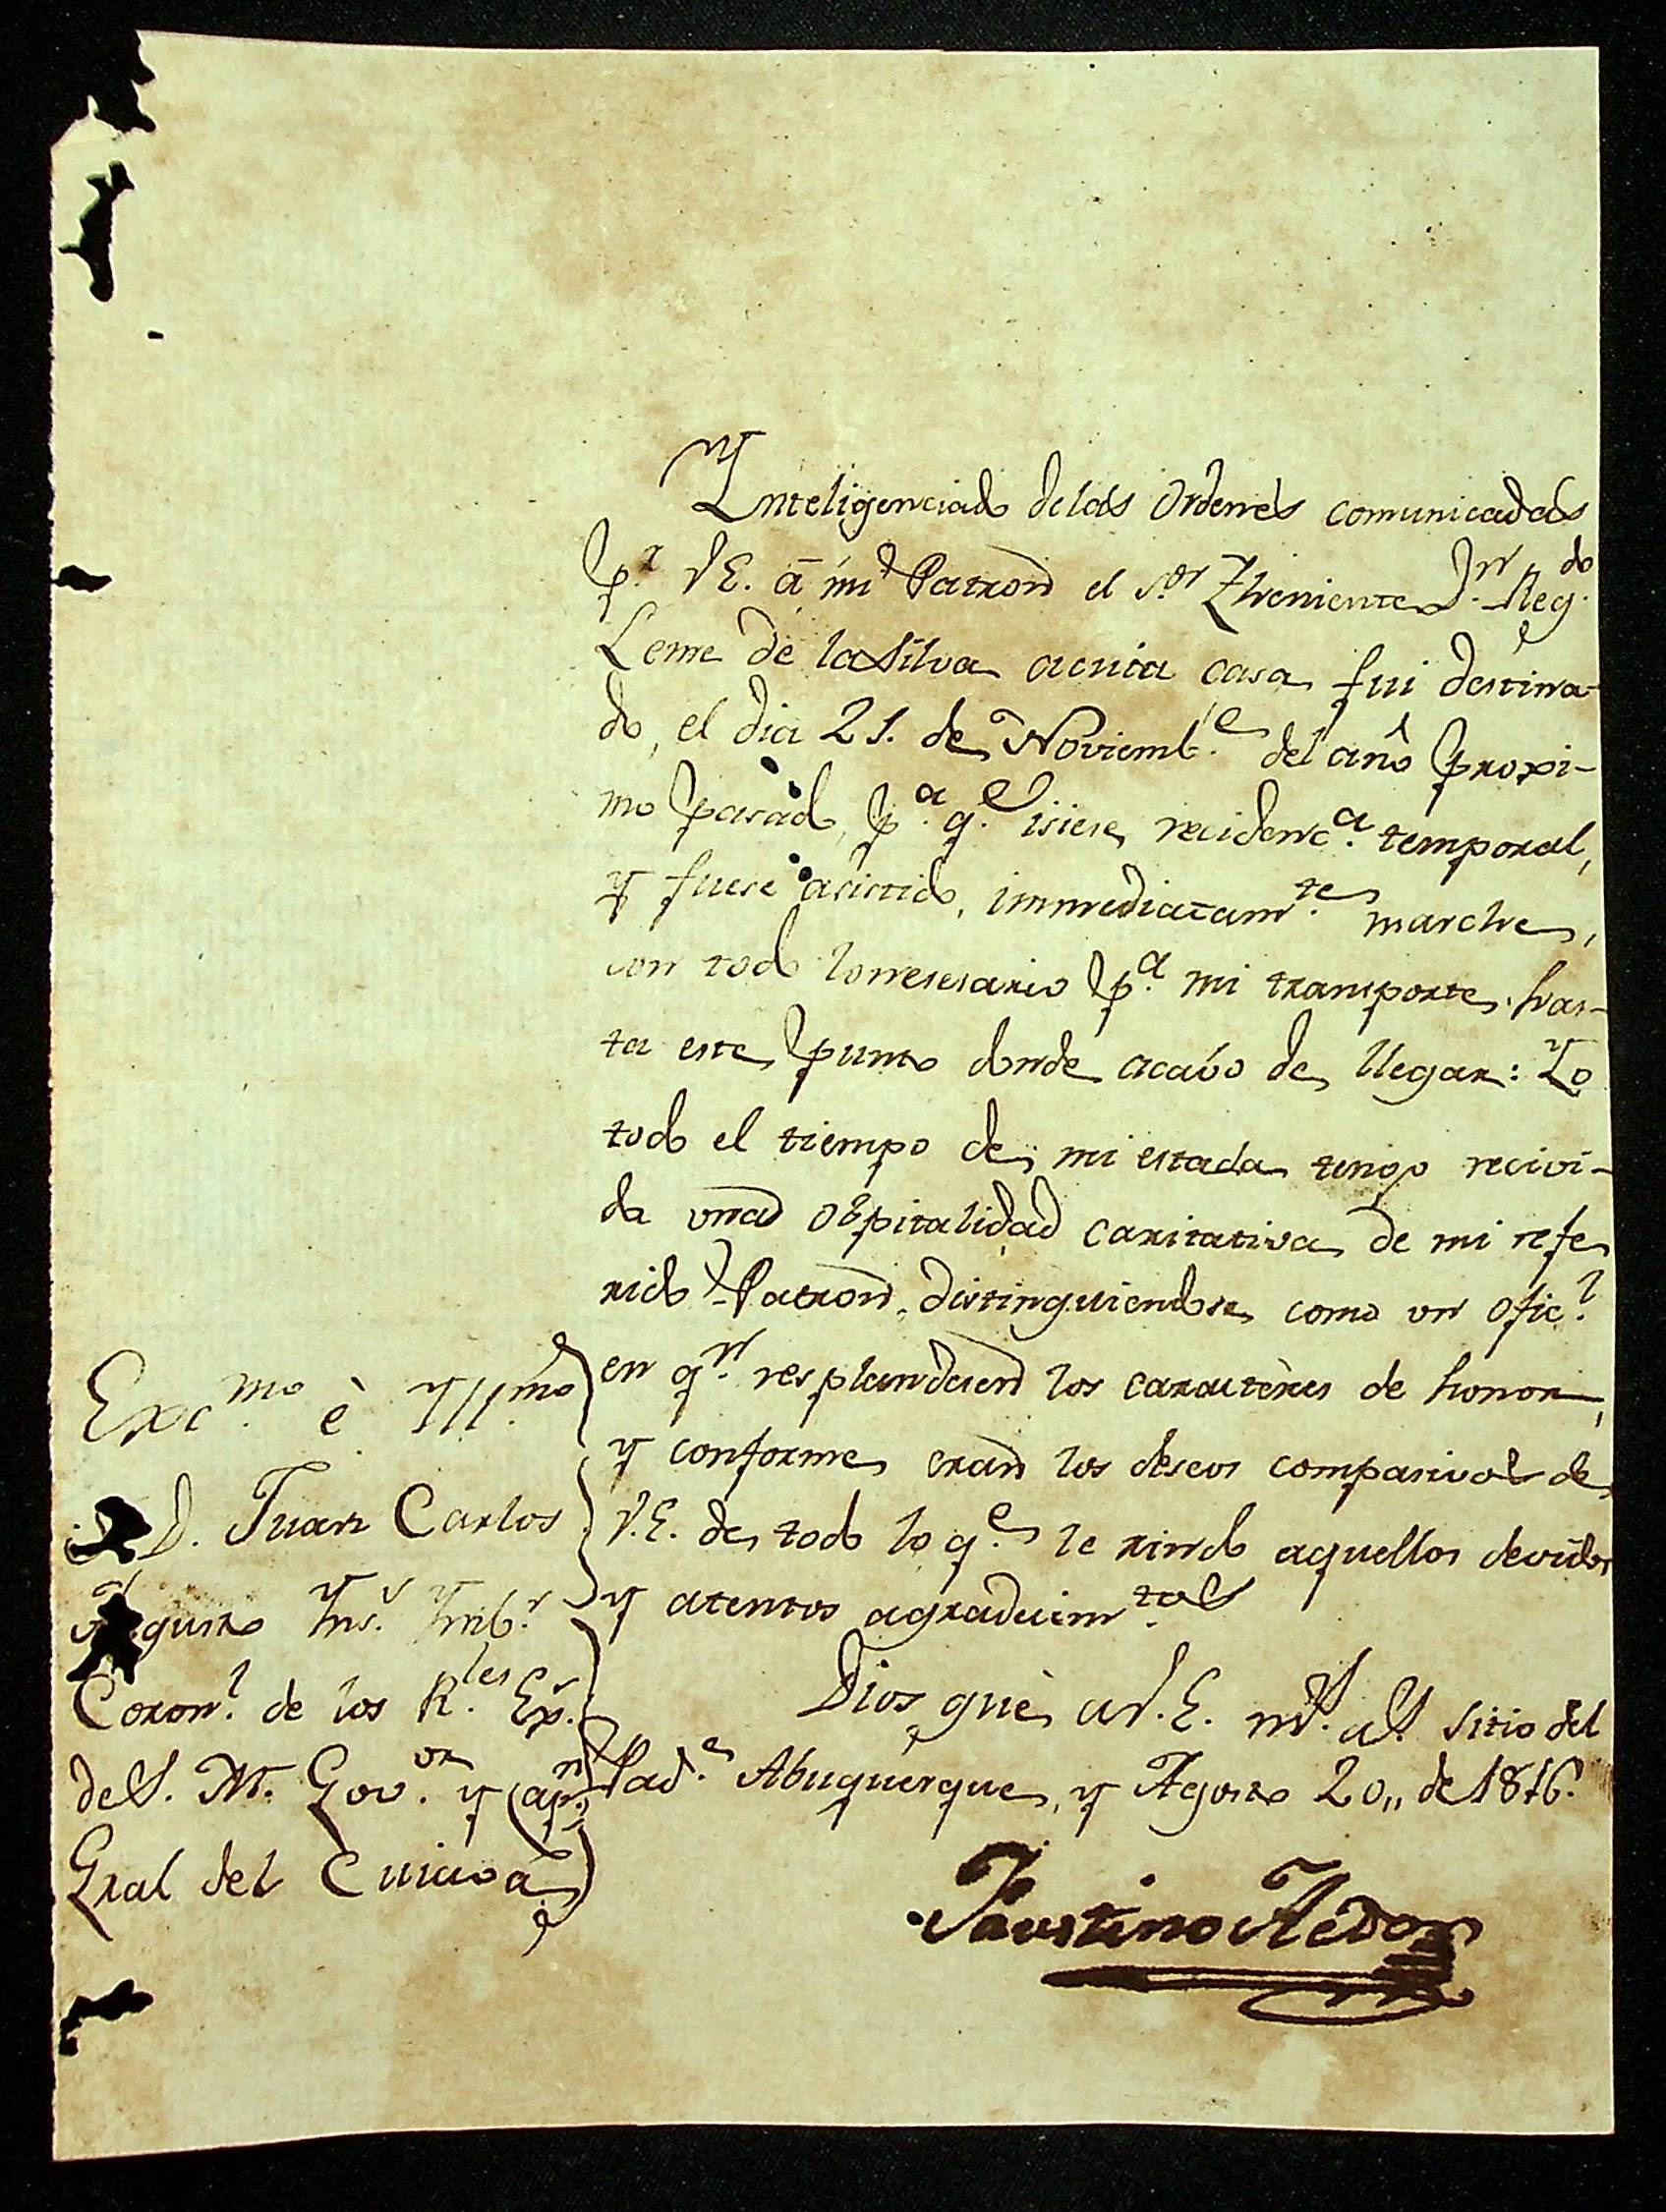 Ynteligenciado delas Ordenes comunicadas
pr. VE. â mi Patron el Sor. Theniente Jn. Regdo.
Leme de la Silva acuia casa fui destina-
do, el dia 21. de Noviembe. del año proxi-
mo pasado, pa. qe. isiese recidenca. temporal,
y fuese asistido, immediatamte. marche,
con todo lo nesesario pa. mi transporte has-
ta este punto donde acavo de llegar: Yo
todo el tiempo de mi estada tengo recivi-
da una ospitalidad caritativa de mi refe
rido Patron, distinguiendose como un Oficl.
en qn. resplandecen los caracteres de honor,
y conforme eran los deseos compasivos de
V.E. de todo lo qe. le rindo aquellos devidos
y atentos agradecimtos.
Dios gue. a V.E. ms. as. Sitio del
Pade. Abuquerque, y Agosto 20,, de 1816.
Faustino Aedo
Excmo. è Yllmo.
D. Juan Carlos
gusto
Coronl. de los Rles. Exs.
de S. M. Govor. y Capn.
Gral del Cuiavá